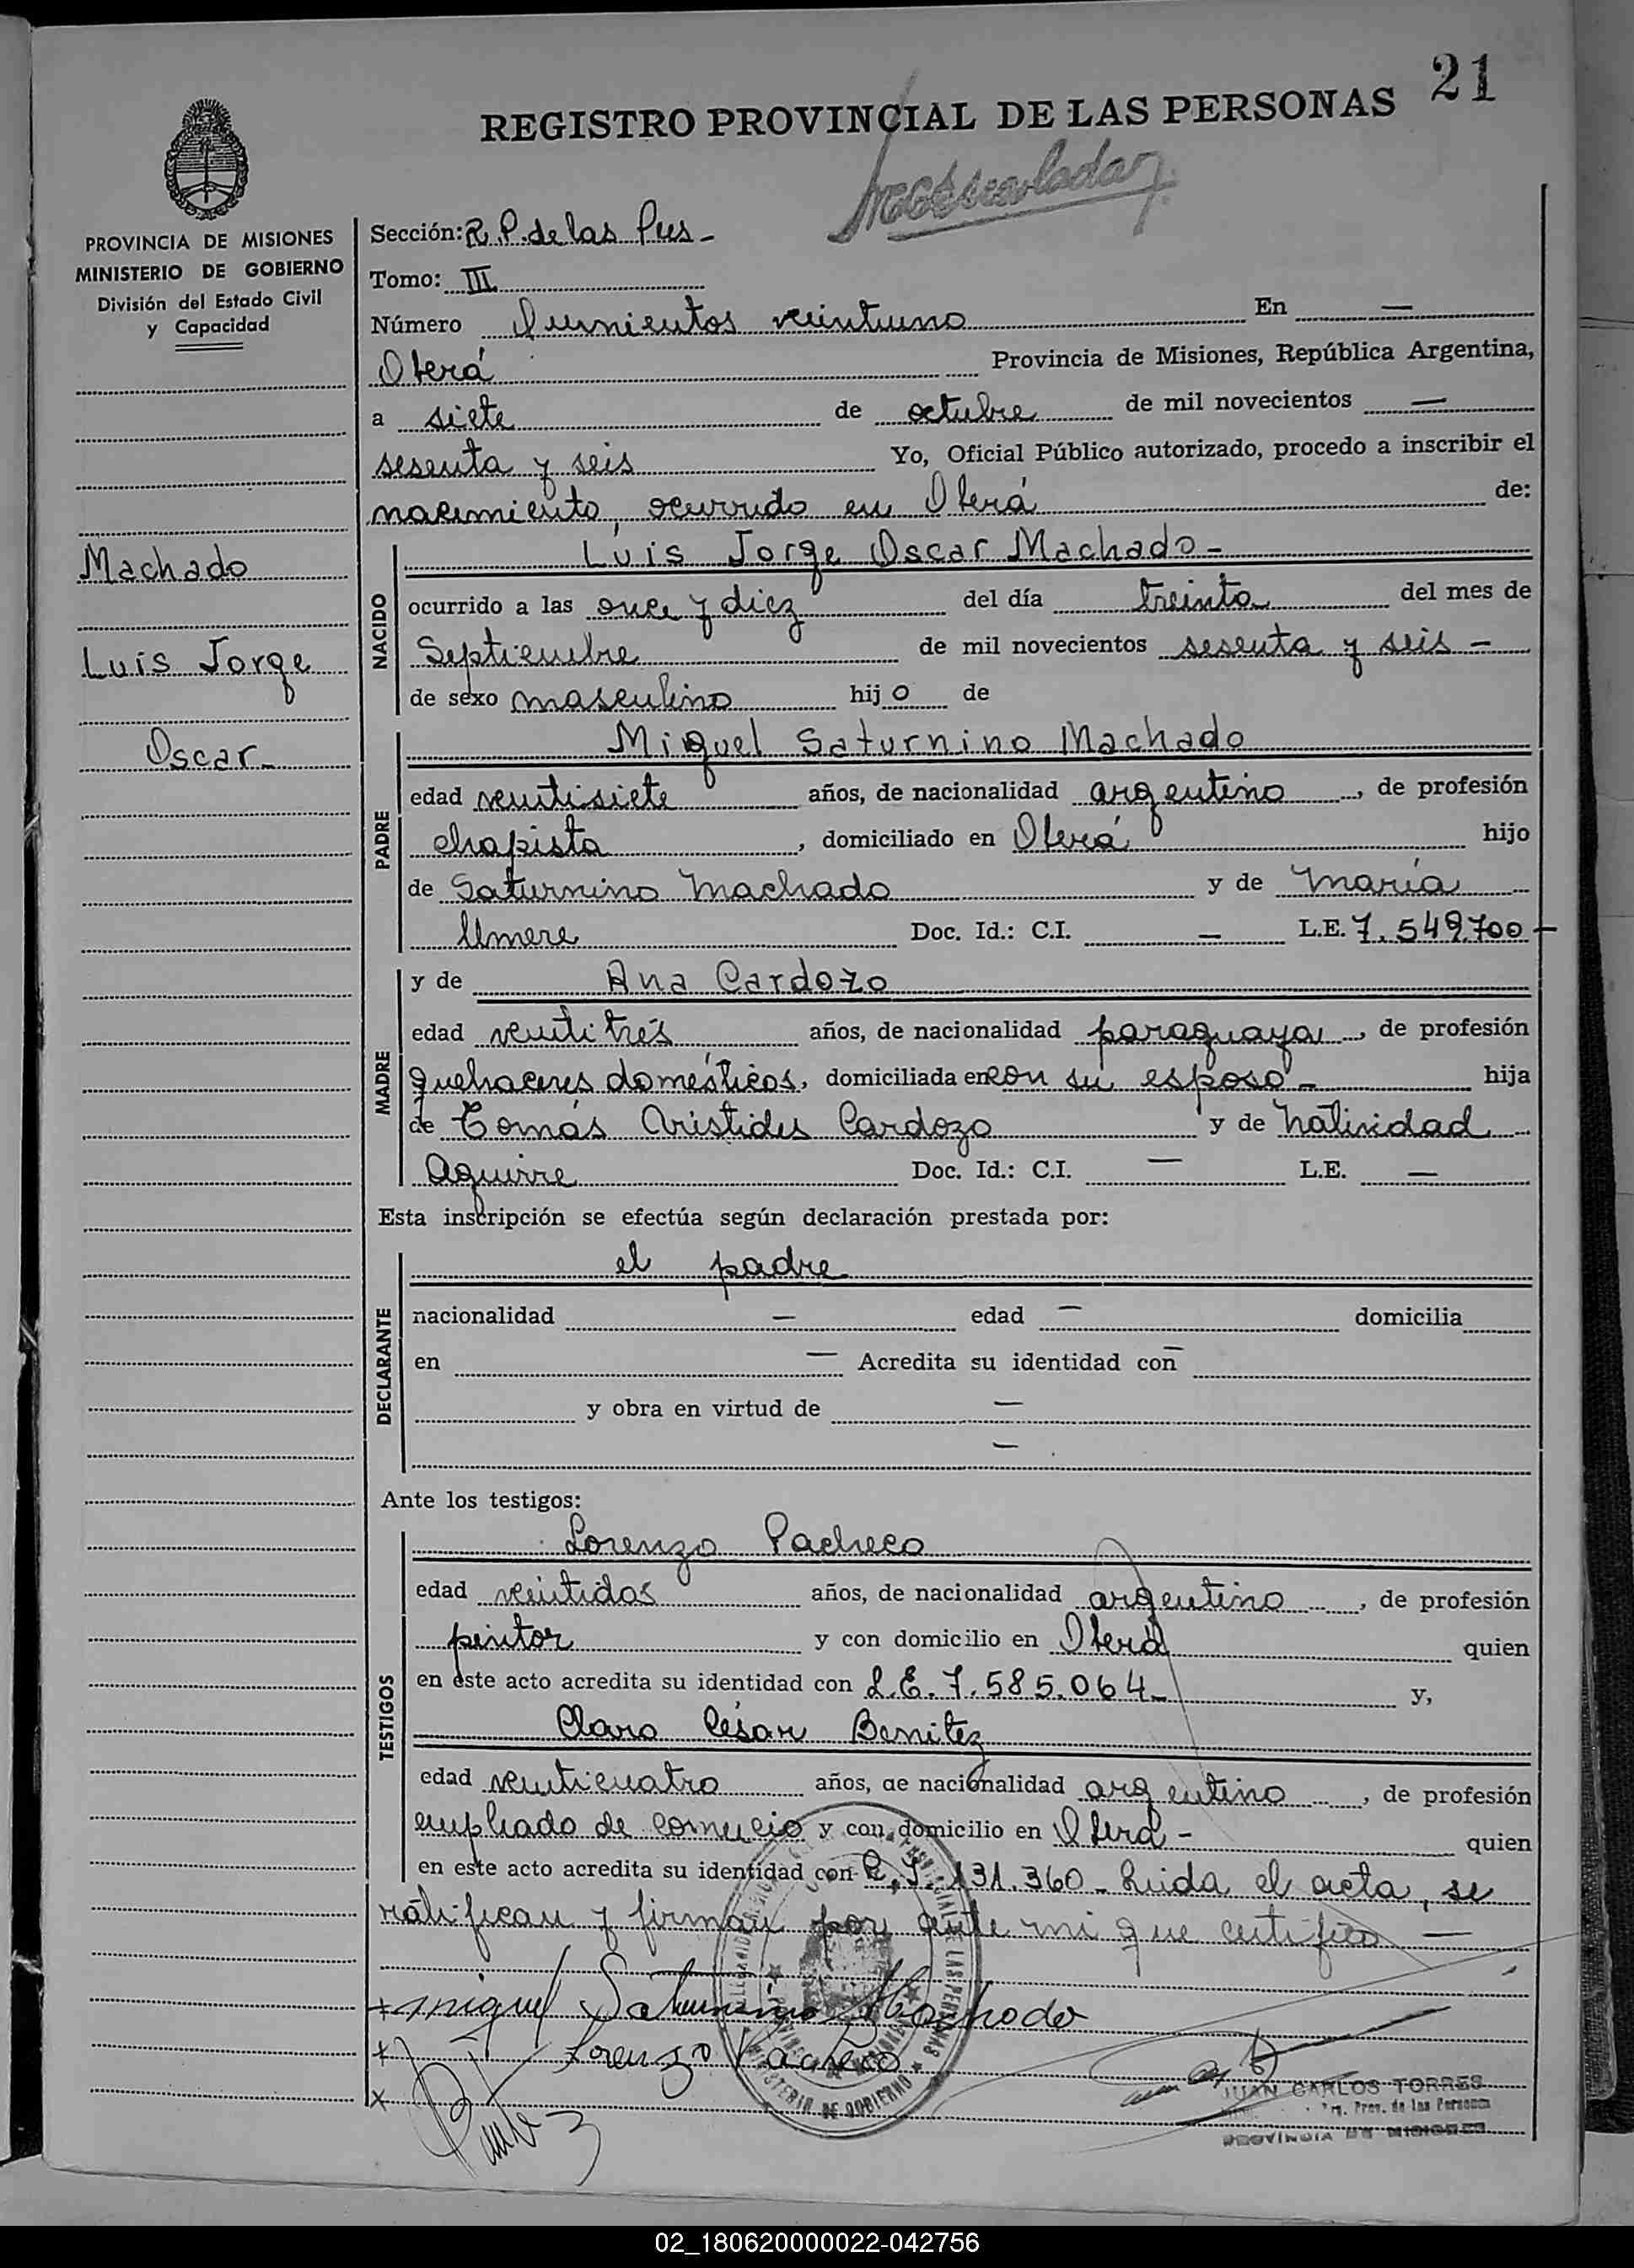 21
REGISTRO PROVINCIAL DE LAS PERSONAS
PROVINCIA DE MISIONES
MINISTERIO DE GOBIERNO
División del Estado Civil
y Capacidad
Machado
Luis Jorge
Oscar-
Sección: R.P. de las Pers-
Tomo: III
Número Quinientos veintiuno En —
Oberá Provincia de Misiones, República Argentina,
a siete de octubre de mil novecientos —
sesenta y seis Yo, Oficial Público autorizado, procedo a inscribir el
nacimiento, ocurrido en Oberá de:
NACIDO
Luis Jorge Oscar Machado-
ocurrido a las once y diez del día treinta del mes de
Septiembre de mil novecientos sesenta y seis -
de sexo masculino hijo de
PADRE
Miguel Saturnino Machado
edad veintisiete años, de nacionalidad argentino, de profesión
chapista, domiciliado en Oberá hijo
de Saturnino Machado y de María
Doc. Id.: C.I. — L.E. 7.549.700-
MADRE
y de Ana Cardozo
edad veintitrés años, de nacionalidad paraguaya, de profesión
quehaceres domésticos, domiciliada en con su esposo- hija
de Tomás Aristides Cardozo y de Natividad
Aguirre Doc. Id.: C.I. — L.E. —
Esta inscripción se efectúa según declaración prestada por:
DECLARANTE
el padre
nacionalidad — edad — domicilia
en — Acredita su identidad con —
y obra en virtud de —
—
Ante los testigos:
TESTIGOS
Lorenzo Pacheco
edad veintidos años, de nacionalidad argentino, de profesión
pintor y con domicilio en Oberá quien
en este acto acredita su identidad con L.E. 7.585.064- y,
Claro César Benitez
edad veinticuatro años, de nacionalidad argentino, de profesión
empleado de comercio y con domicilio en Oberá- quien
en este acto acredita su identidad con 131.360- Leida el acta, se
ratifican y firman por ante mi que certifico —
x Miguel Saturnino Machado
x Lorenzo Pacheco
x
JUAN CARLOS TORRES
Prov. de las Personas
PROVINCIA DE MISIONES
MINISTERIO DE GOBIERNO
02_180620000022-042756